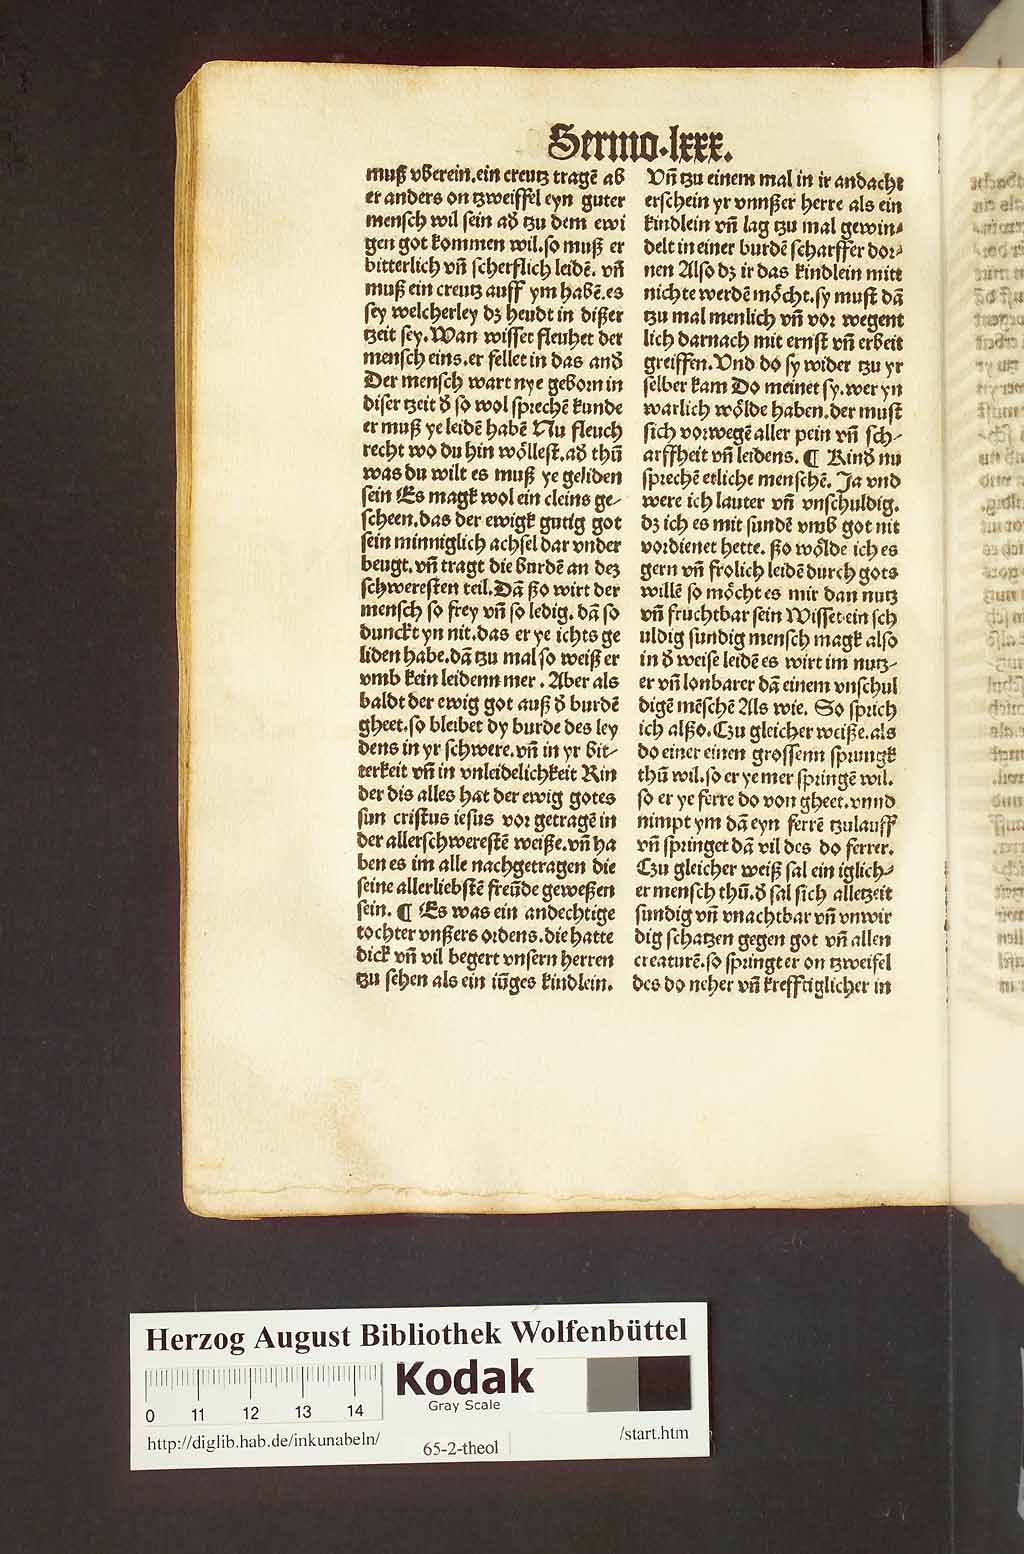 Sermo.lxxx.
muß vberein.ein creutz tragē ab
er anders on tzweiffel eyn guter
mensch wil sein aď tzu dem ewi
gen got kommen wil.so muß er
bitterlich vn̄ scherflich leidē. vn̄
muß ein creutz auff ym habē.es
sey welcherley dz heudt in dißer
tzeit sey.Wan wisset fleuhet der
mensch eins.er fellet in das anď
Der mensch wart nye geborn in
diser tzeit ď so wol sprechē kunde
er muß ye leidē habē Nu fleuch
recht wo du hin wöllest.aď thū
was du wilt es muß ye geliden
sein Es magk wol ein cleins ge-
scheen.das der ewigk gutig got
sein minniglich achsel dar vnder
beugt.vn̄ tragt die burdē an dez
schweresten teil.Dā ßo wirt der
mensch so frey vn̄ so ledig. dā so
dunckt yn nit.das er ye ichts ge
liden habe.dā tzu mal so weiß er
vmb kein leidenn mer . Aber als
baldt der ewig got auß ď burdē
gheet.so bleibet dy burde des ley
dens in yr schwere.vn̄ in yr bit-
terkeit vn̄ in vnleidelichkeit Kin
der dis alles hat der ewig gotes
sun cristus iesus vor getragē in
der allerschwerestē weiße.vn̄ ha
ben es im alle nachgetragen die
seine allerliebstē freūde geweßen
sein. ¶ Es was ein andechtige
tochter vnßers ordens.die hatte
dick vn̄ vil begert vnsern herren
tzu sehen als ein iūges kindlein.
Vn̄ tzu einem mal in ir andacht
erschein yr vnnßer herre als ein
kindlein vn̄ lag tzu mal gewin-
delt in einer burdē scharffer dor-
nen Also dz ir das kindlein mitt
nichte werdē möcht.sy must dā
tzu mal menlich vn̄ vor wegent
lich darnach mit ernst vn̄ erbeit
greiffen.Vnd do sy wider tzu yr
selber kam Do meinet sy.wer yn
warlich wölde haben.der must
sich vorwegē aller pein vn̄ sch-
arffheit vn̄ leidens. ¶ Kinď nu
sprechē etliche menschē. Ja vnd
were ich lauter vn̄ vnschuldig.
dz ich es mit sundē vmb got nit
vordienet hette. ßo wölde ich es
gern vn̄ frolich leidē durch gots
willē so möcht es mir dan nutz
vn̄ fruchtbar sein Wisset ein sch
uldig sundig mensch magk also
in ď weise leidē es wirt im nutz-
er vn̄ lonbarer dā einem vnschul
digē mēschē Als wie. So sprich
ich alßo.Czu gleicher weiße.als
do einer einen grossenn sprungk
thū wil.so er ye mer springē wil.
so er ye ferre do von gheet.vnnd
nimpt ym dā eyn ferrē tzulauff
vn̄ springet dā vil des do ferrer.
Czu gleicher weiß sal ein iglich-
er mensch thū.ď sal sich alletzeit
sundig vn̄ vnachtbar vn̄ vnwir
dig schatzen gegen got vn̄ allen
creaturē.so springt er on tzweifel
des do neher vn̄ krefftiglicher in
Herzog August Bibliothek Wolfenbüttel
Kodak
Gray Scale
0 11 12 13 14
http://diglib.hab.de/inkunabeln/
65-2-theol
/start.htm